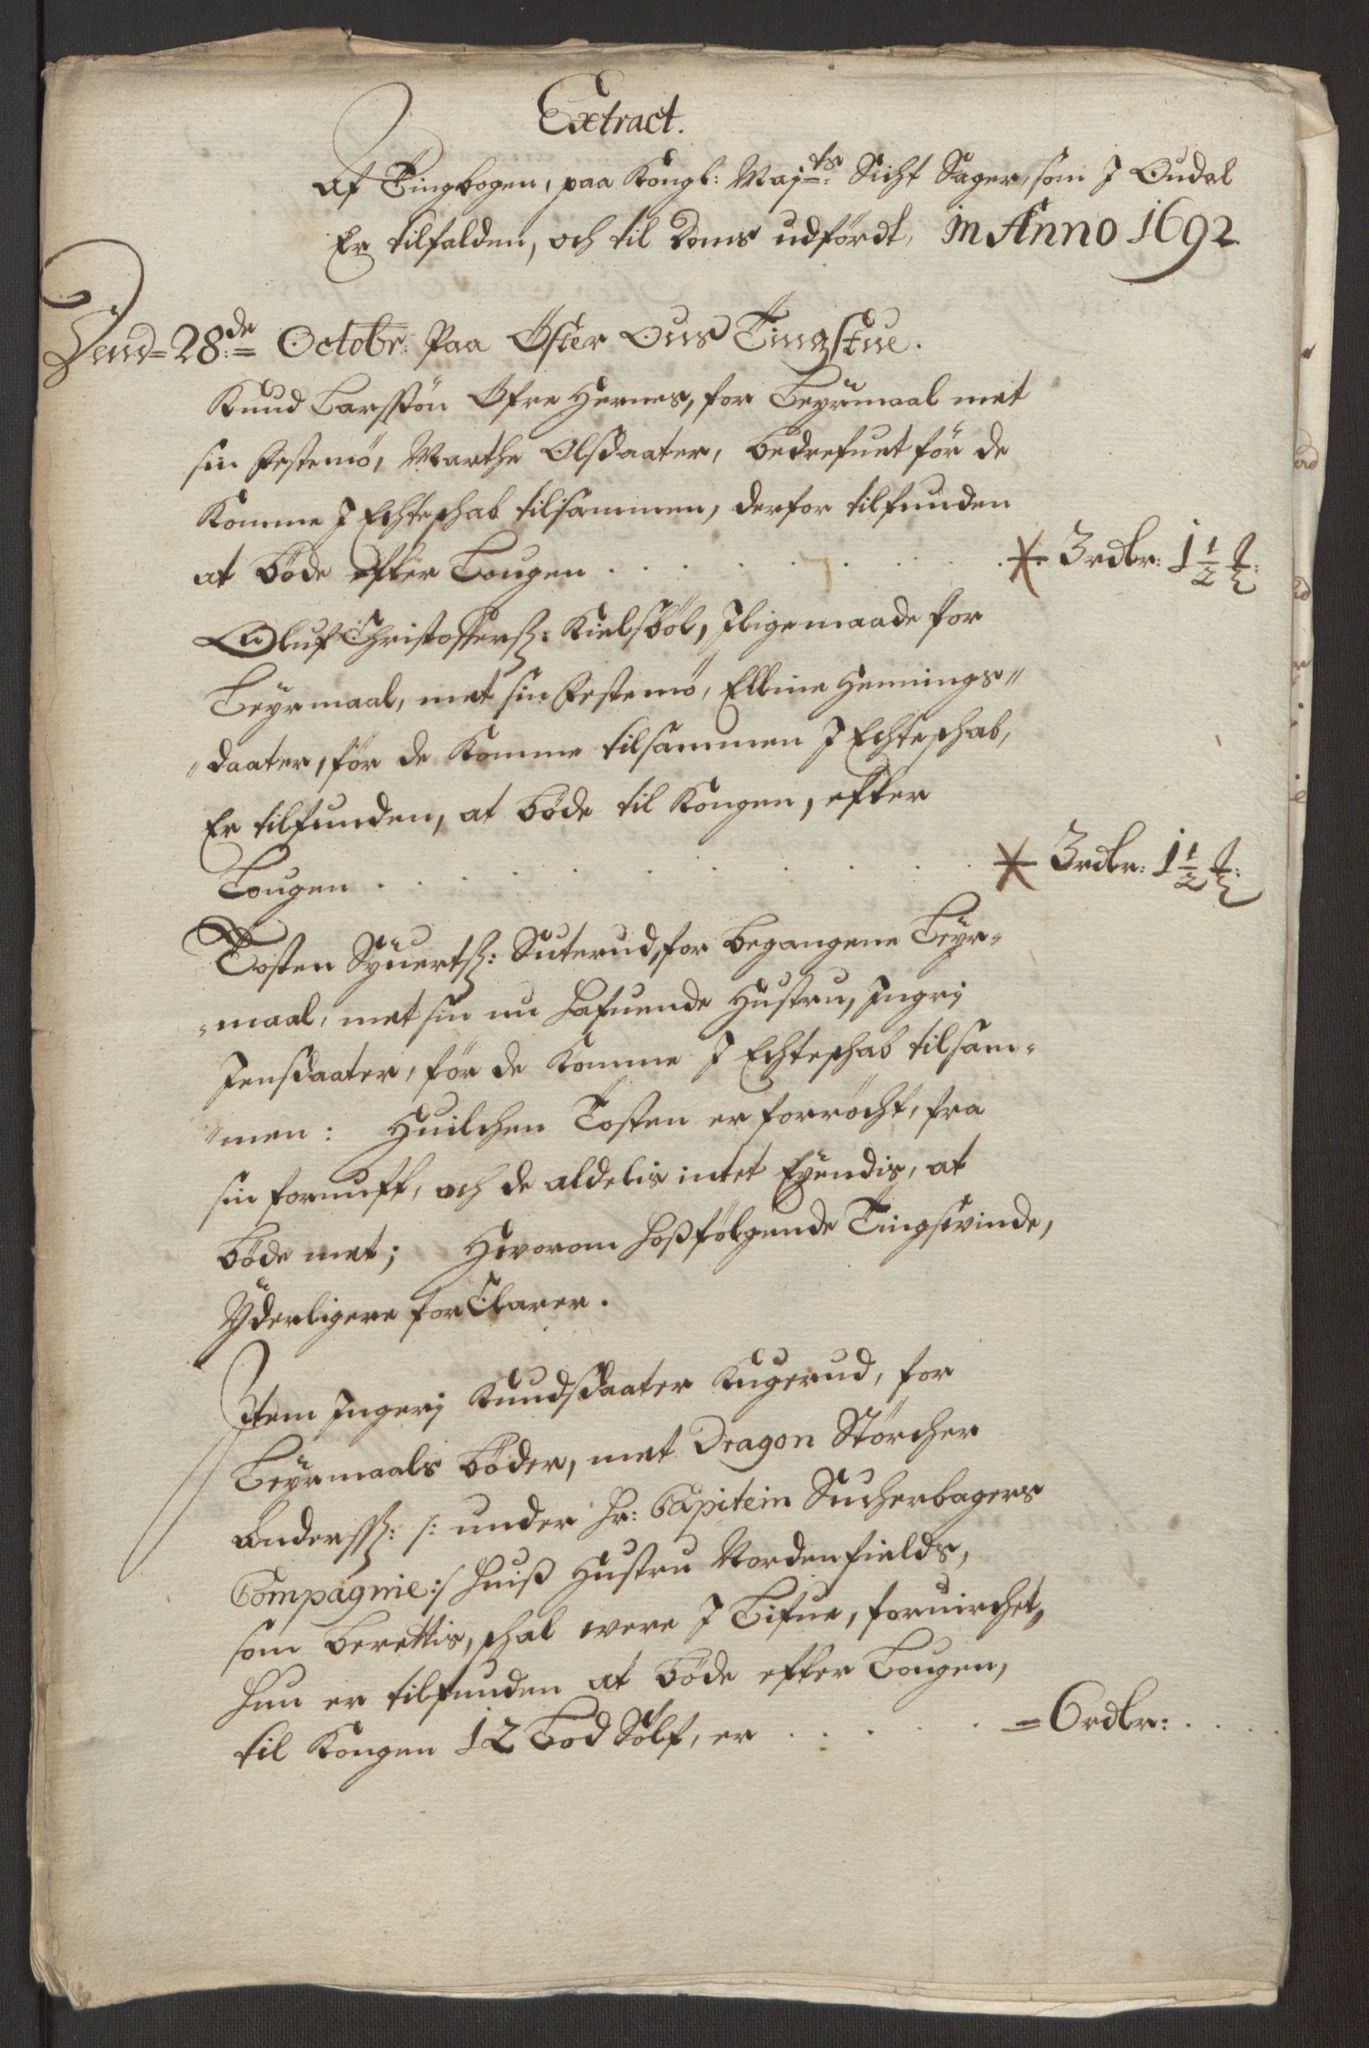 Extract.
Af Tingbogen, paa Kongl: Maj:ts Sicht Sager, som J Oudal
Er tilfalden, och til Doms udfördt, in Anno 1692
Dend= 28:de= Octobr: Paa Öster Ous Tingstue.
Knud Larssön Öfre Hernes, for Leyrmaal met
sin festemö, Marthe Olsdaater, bedrefuet för de
Komme J Echteschab tilsammen, derfor tilfunden
at böde efter Lougen . . . . . . . 3 rdlr: 1 1/2 ℔:
Oluf Christoffersß: Kielsböl, Jligemaade for
Leyrmaal, met sin festemö, Elline Hennings"
"daater, för de Komme tilsammen J Echteschab,
Er tilfunden, at böde til Kongen, efter
Lougen . . . . . . . . 3 rdlr: 1 1/2 ℔:
Tosten Syuertß: Suterud, for begangene Leyr=
=maal, met sin nu hafuende Hustru, Jngrj
Jensdaater, för de Komme J Echteschab tilsam=
"men: Huilchen Tosten er forröcht, fra
sin fornufft, och de aldelis intet Eyendis, at
böde met; Hworom hoßfölgende Tingswinde,
Yderligere forklarer.
Jtem Jngerj Knudsdaater Kugerud, for
Leyrmaals böder, met Dragon Störcher
Anderssß: /: under Hr: Capitein Sucherbagers
Compagnie :/ huiß Hustru Nordenfields,
som berettis, schal were J Lifue, foruirchet,
hun er tilfunden at böde efter Lougen,
til Kongen 12 Lod Sölf, er . . . . . = 6 rdlr: . . . .